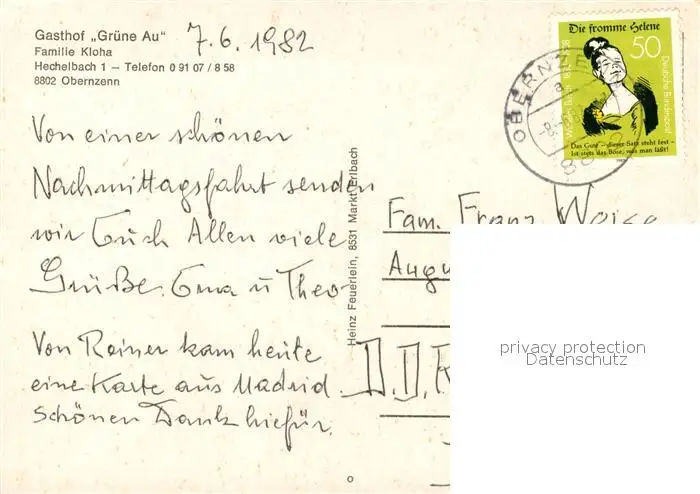 Gasthof „Grüne Au" 7.6.1982
Familie Kloha
Hechelbach 1 – Telefon 0 91 07 / 8 58
8802 Obernzenn
Von einer schönen
Nachmittagsfahrt senden
wir Euch Allen viele
Grüße. Oma u Theo
Von Reiner kam heute
eine Karte aus Madrid.
Schönen Dank hiefür.
Heinz Feuerlein, 8531 Markt Erlbach
Die fromme Helene
50
Deutsche Bundespost
Wilhelm Busch 1832-1908
Das Gute – dieser Satz steht fest –
Ist stets das Böse, was man läßt!
Fam. Franz Weise
Augu
D.D.R
privacy protection
Datenschutz